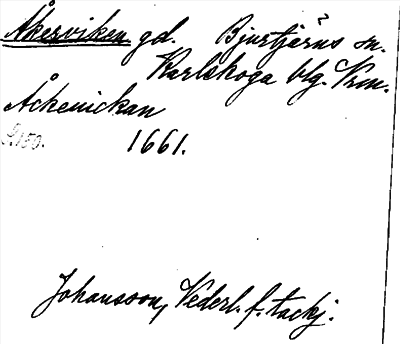 Åkerviken gd. Bjurtjärns sn.
Karlskoga blg. Vrm.
Åchenickan
S.150. 1661.
Johansson, Vederl. f. tackj.